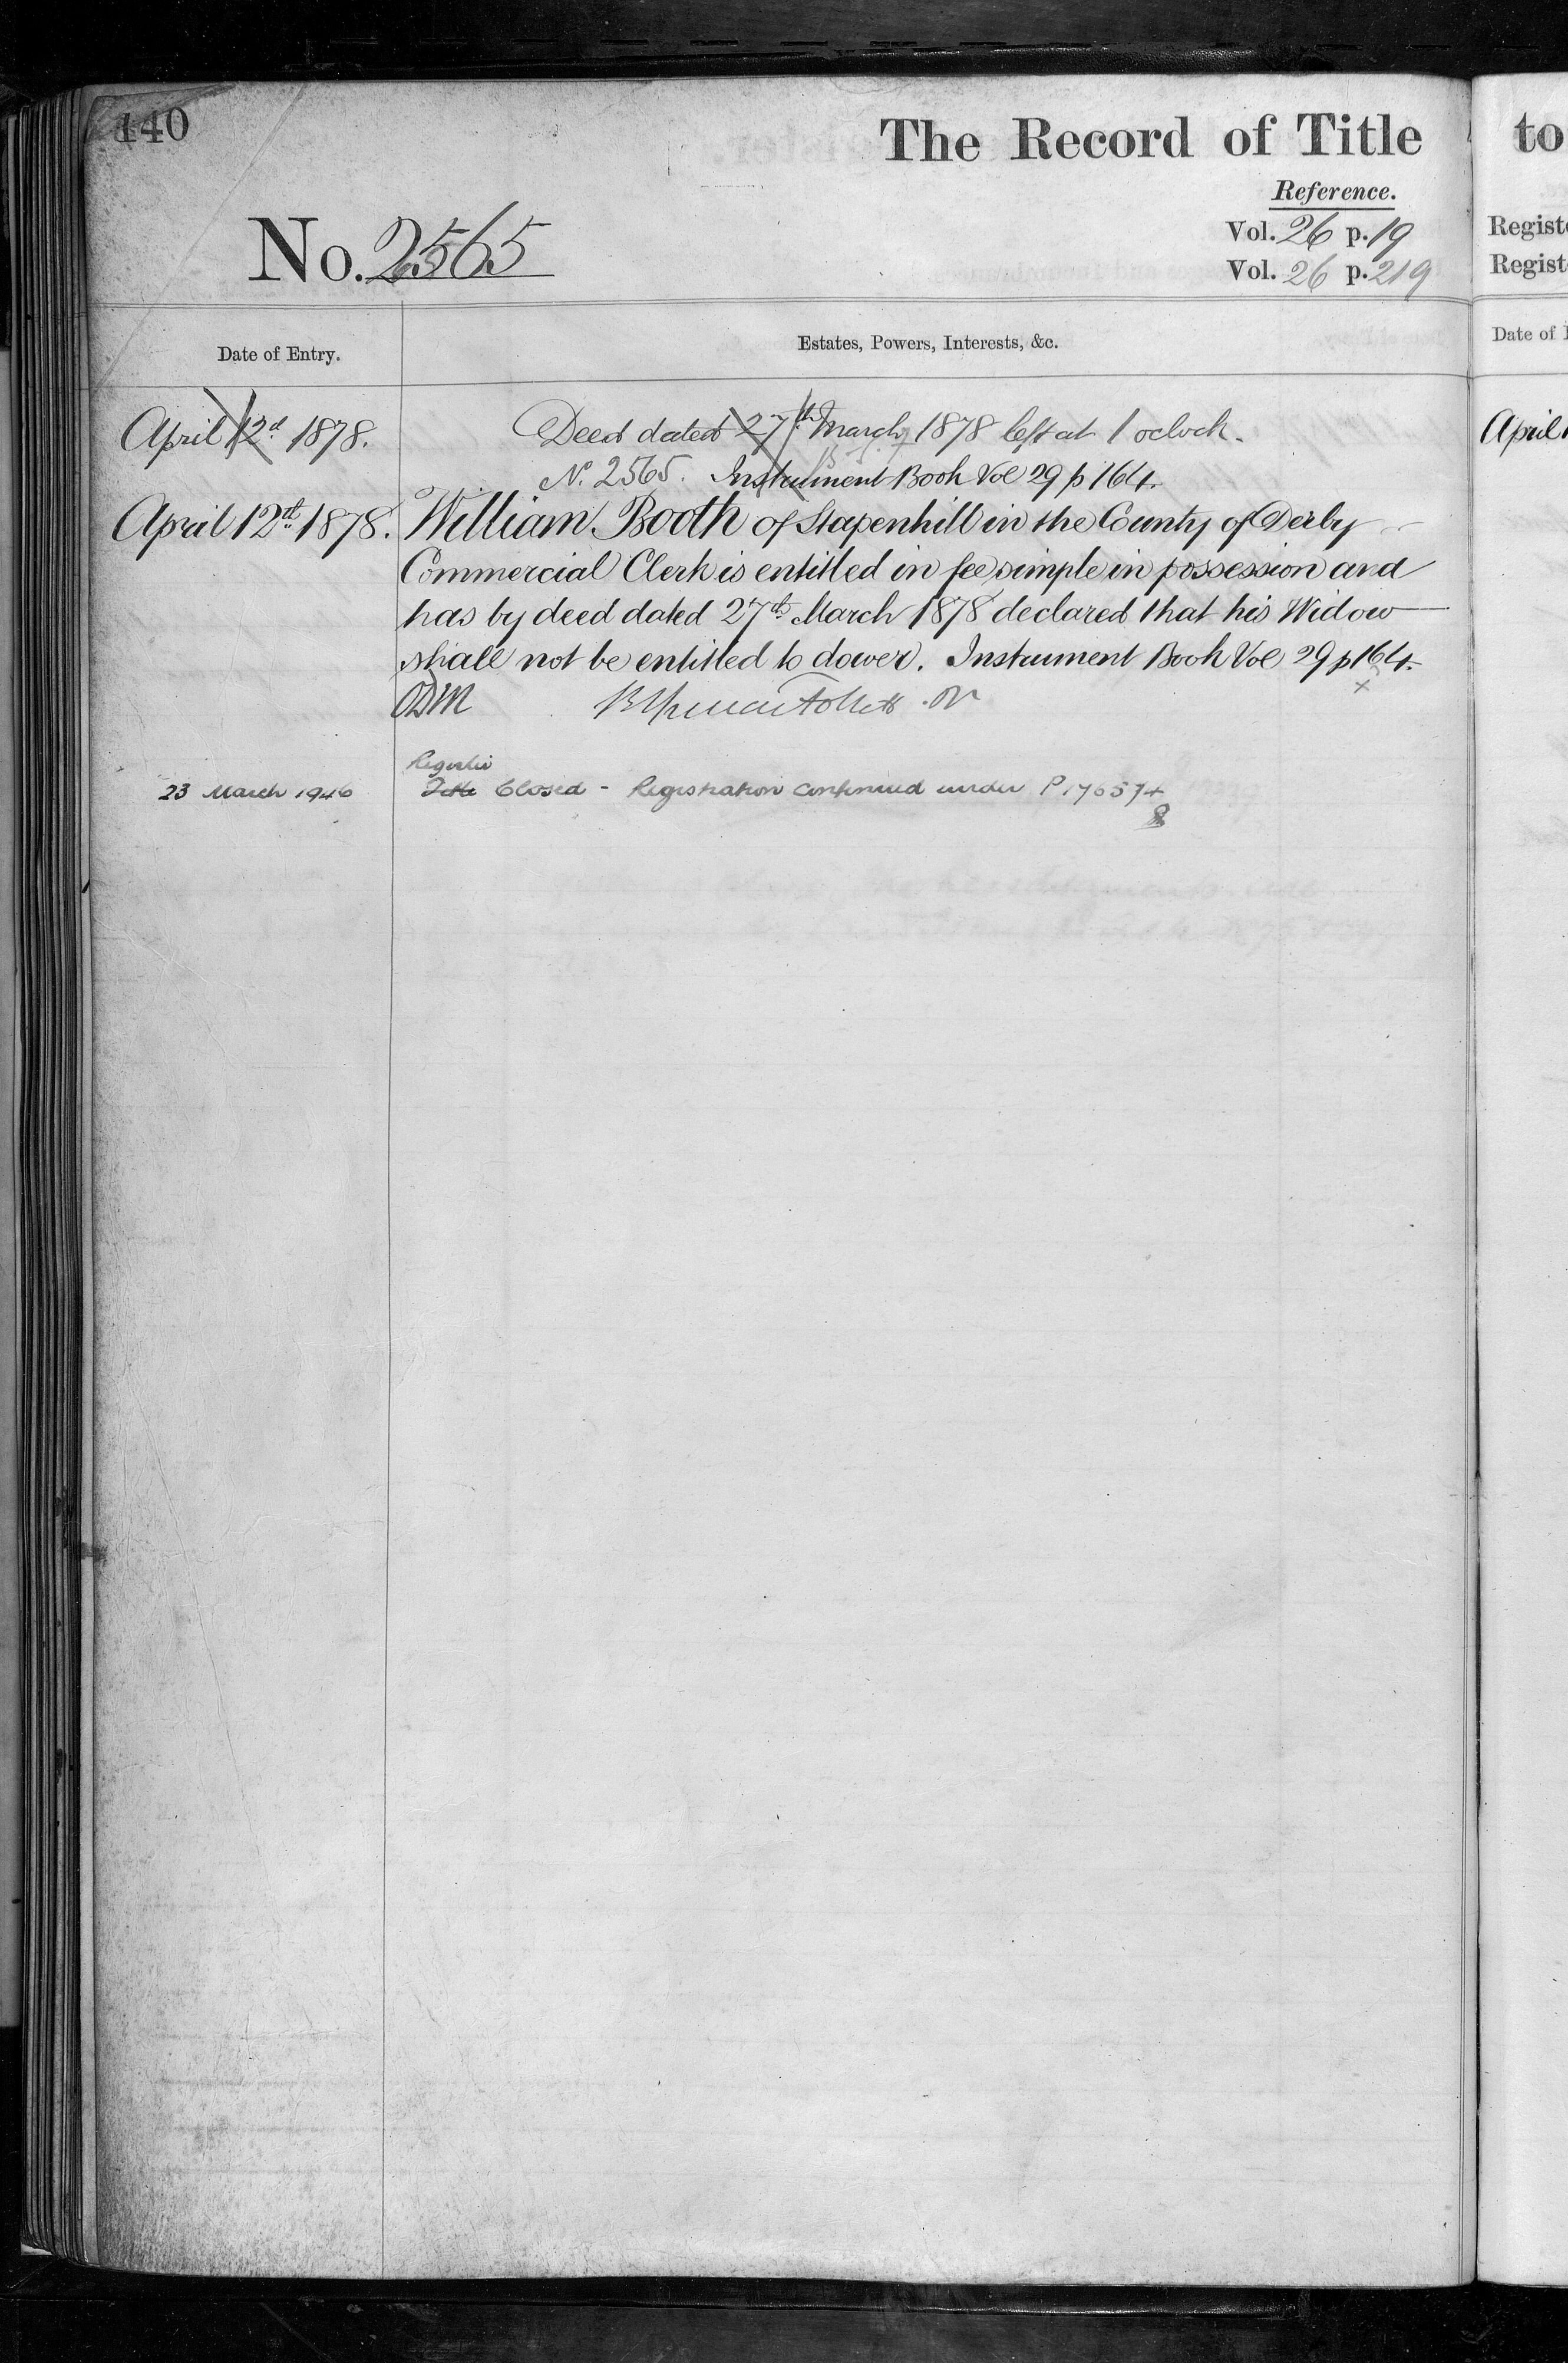 140
The Record of Title
Reference.
No. 2565
Vol. 26 p. 19
Vol. 26 p. 219
Date of Entry.
Estates, Powers, Interests, &c.
April 12d 1878.
Deed dated 27th March 1878 left at 1 oclock.
N. 2565. Instrument Book Vol 29 p 164.
April 12th 1878.
William Booth of Stapenhill in the County of Derby
Commercial Clerk is entitled in fee simple in possession and
has by deed dated 27th March 1878 declared that his Widow
shall not be entitled to dower. Instrument Book Vol 29 p 164.
ODM
Register
23 March 1946
Title Closed - Registration continued under P176574
to
Registe
Regist
Date of
April